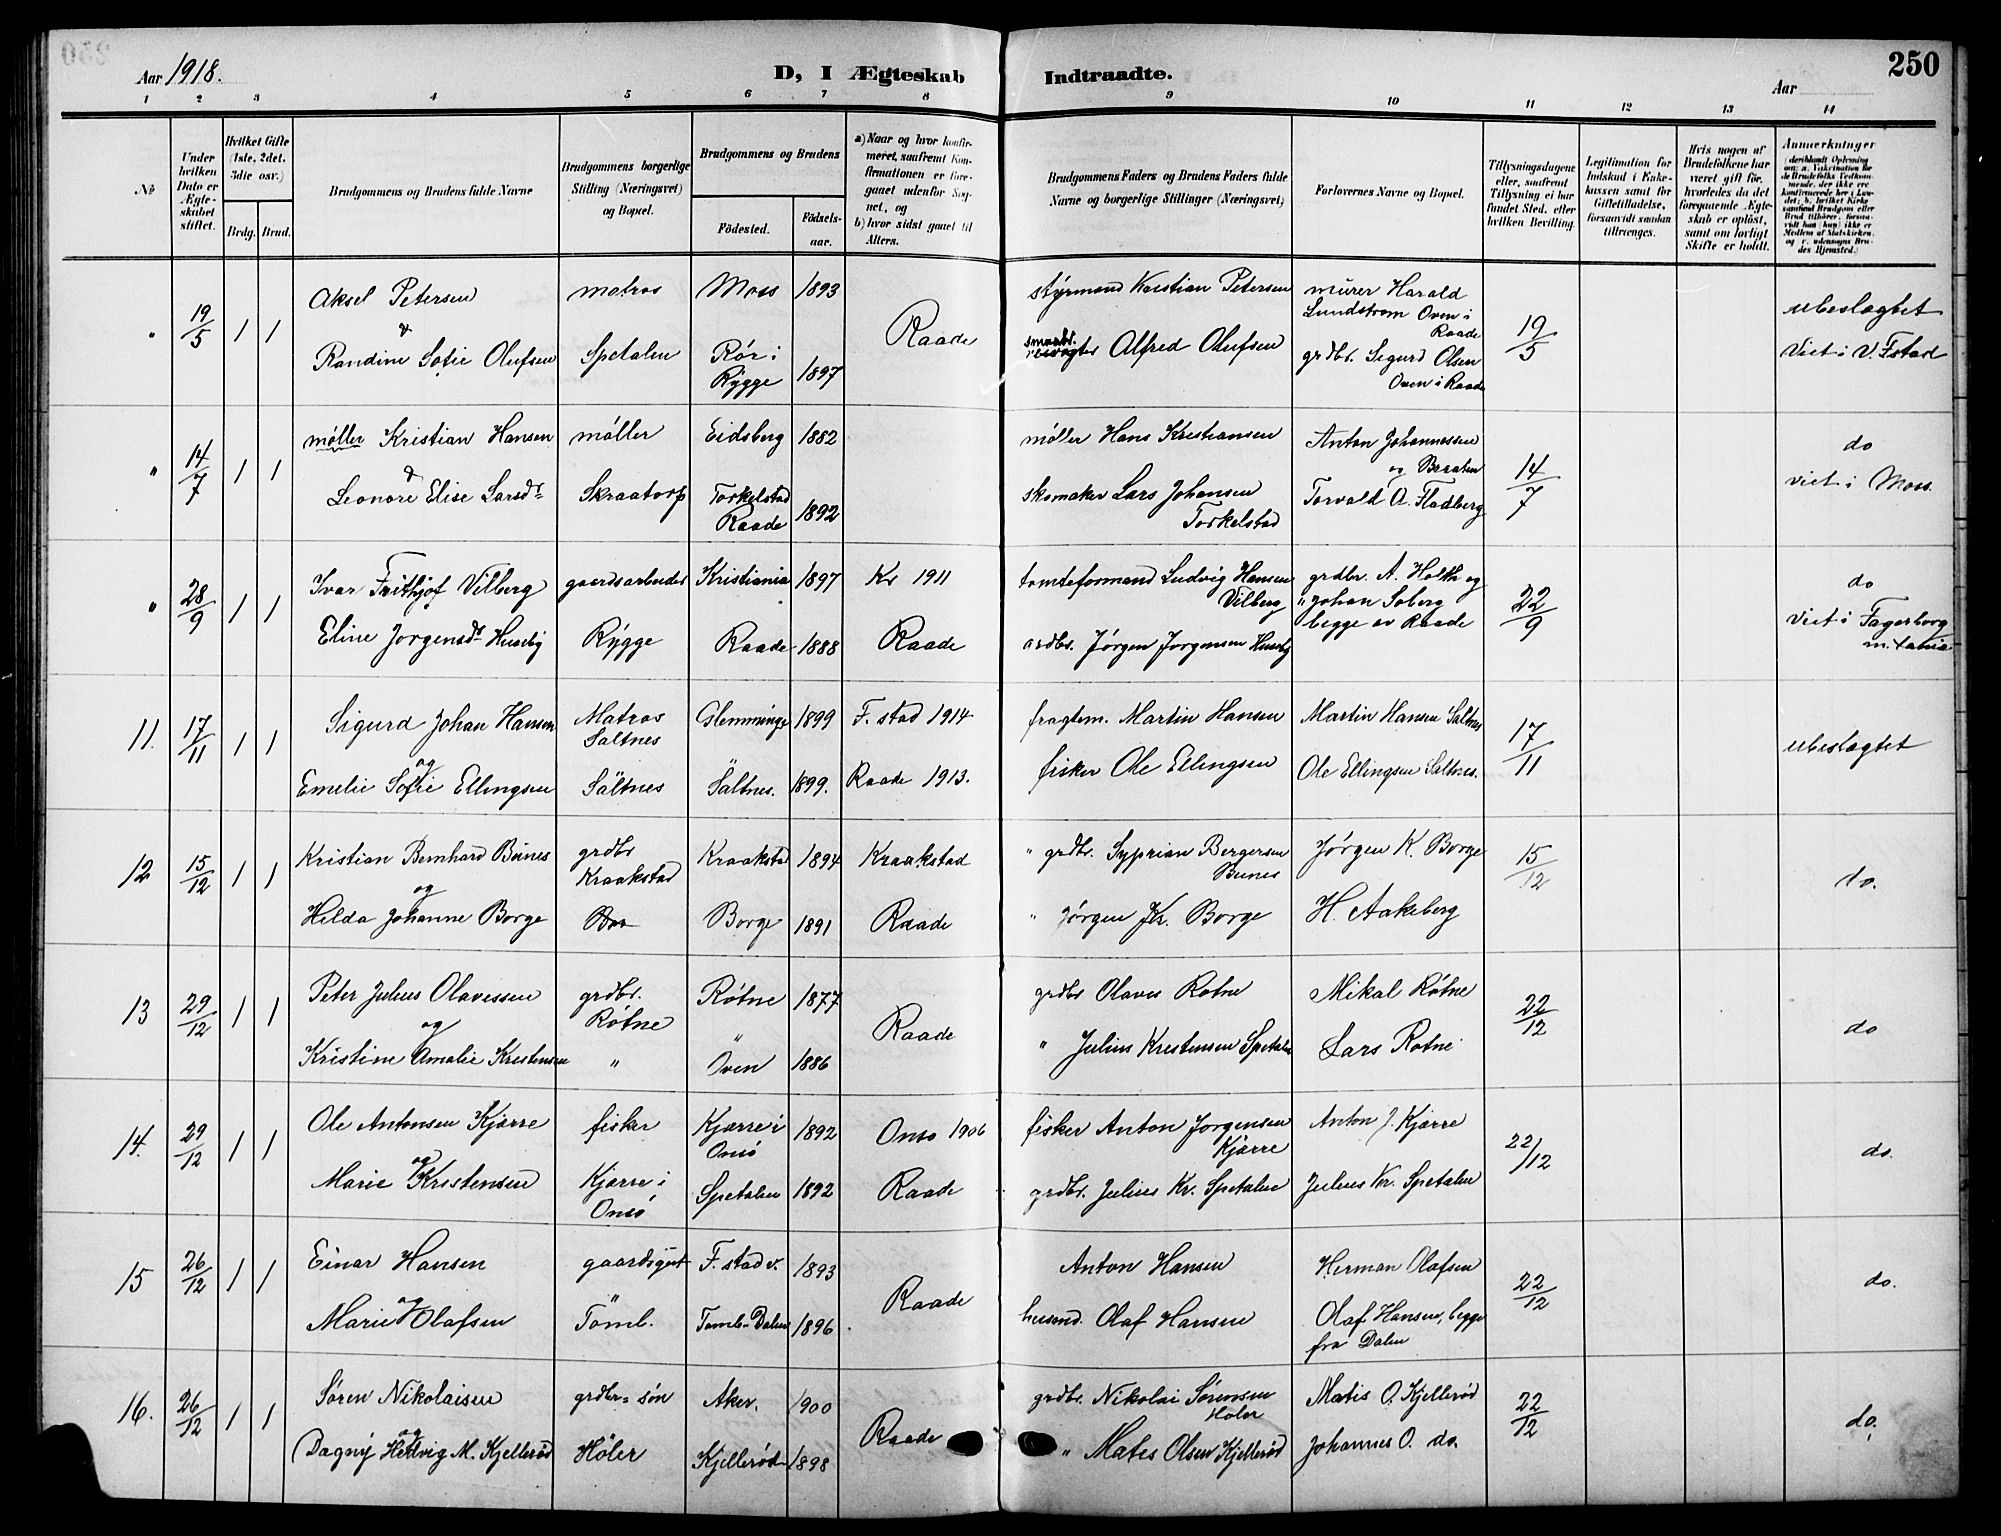 Aar 1918.
D, I Ægteskab Indtraadte.
250
Aar
1 2 3 4 5 6 7 8 9 10 11 12 13 14
No
Under hvilken Dato er Ægteskabet stiftet.
Hvilket Gifte (1ste, 2det, 3die osv.)
Brdg. Brud.
Brudgommens og Brudens fulde Navne
Brudgommens borgerlige Stilling (Næringsvei) og Bopæl.
Brudgommens og Brudens
Födested.
Födselsaar.
a) Naar og hvor konfirmeret, saafremt Konfirmationen er foregaaet udenfor Sognet, og
b) hvor sidst gaaet til Alters.
Brudgommens Faders og Brudens Faders fulde Navne og borgerlige Stillinger (Næringsvei)
Forlovernes Navne og Bopæl.
Tillysningsdagene eller, saafremt Tillysning ei har fundet Sted, efter hvilken Bevilling.
Legitimation for Indskud i Enkekassen samt for Giftetilladelse, forsaavidt saadan tiltrænges.
Hvis nogen af Brudefolkene har været gift før, hvorledes da det foregaaende Ægteskab er opløst, samt om lovligt Skifte er holdt.
Anmerkninger
" 19/5 1 1 Aksel Petersen matros Moss 1893 Raade styrmand Kristian Petersen murer Harald Lundstrøm Oven i Raade 19/5 ubeslægtet
& Randine Sofie Olufsen Spetalen Rør i Rygge 1897 Alfred Olufsen grdbr. Sigurd Olsen Oven i Raade Viet i V. Fstad
" 14/7 1 1 møller Kristian Hansen møller Eidsberg 1882 møller Hans Kristiansen Anton Johannessen og Braaten 14/7 do
& Leonore Elise Larsdr Skraatorp Torkelstad Raade 1892 skomaker Lars Johansen Torkelstad Torvald A. Fladberg viet i Moss.
" 28/9 1 1 Ivar Frithjof Vilberg gaardsarbeider Kristiania 1897 Kr 1911 tomteformand Ludvig Hansen Vilberg grdbr. A. Holth og 22/9 do
Eline Jørgensdr Huseby Rygge Raade 1888 Raade grdbr. Jørgen Jørgensen Huseby " Johan Solberg begge av Raade Viet i Fagerborg
11. 17/11 1 1 Sigurd Johan Hansen Matros Saltnes Glemminge 1899 F.stad 1914 fragtem. Martin Hansen Martin Hansen Saltnes 17/11 ubeslægtet
og Emelie Sofie Ellingsen Saltnes Saltnes. 1899. Raade 1913. fisker Ole Ellingsen Ole Ellingsen Saltnes.
12 15/12 1 1 Kristian Bernhard Bunes grdbr Kraakstad Kraakstad 1894 Kraakstad " grdbr. Syprian Bergersen Bunes Jørgen K. Borge 15/12 do.
og Hilda Johanne Borge Borge 1891 Raade " Jørgen Kr. Borge H. Aakeberg
13 29/12 1 1 Peter Julius Olavessen grdbr. Røtne Røtne 1877 Raade grdbr Olaves Røtne Mikal Røtne 22/12 do
og Kristine Amalie Kristensen " Oven 1886 " Julius Kristensen Spetalen Lars Røtne
14. 29/12 1 1 Ole Antonsen Kjærre fisker Kjærre i Onsø 1892 Onsø 1906 fisker Anton Jørgensen Kjærre Anton J. Kjærre 22/12 do.
og Marie Kristensen Kjærre i Onsø Spetalen 1892 Raade grdbr. Julius Kr. Spetalen Julius Kr. Spetalen
15 26/12 1 1 Einar Hansen gaardsgut F.stad v. 1893 Raade Anton Hansen Herman Olafsen 22/12 do.
og Marie Olafsen Tomb. Tomb-Dalen 1896. husmd. Olaf Hansen Olaf Hansen, begge fra Dalen
16. 26/12 1 1 Søren Nikolaisen grdbr-søn Aker. 1900 Raade grdbr. Nikolai Sørensen Høler Matis O. Kjellerød 22/12 do.
og Dagny Hedvig M. Kjellerød Høler Kjellerød 1898 " Mates Olsen Kjellerød Johannes O. do.